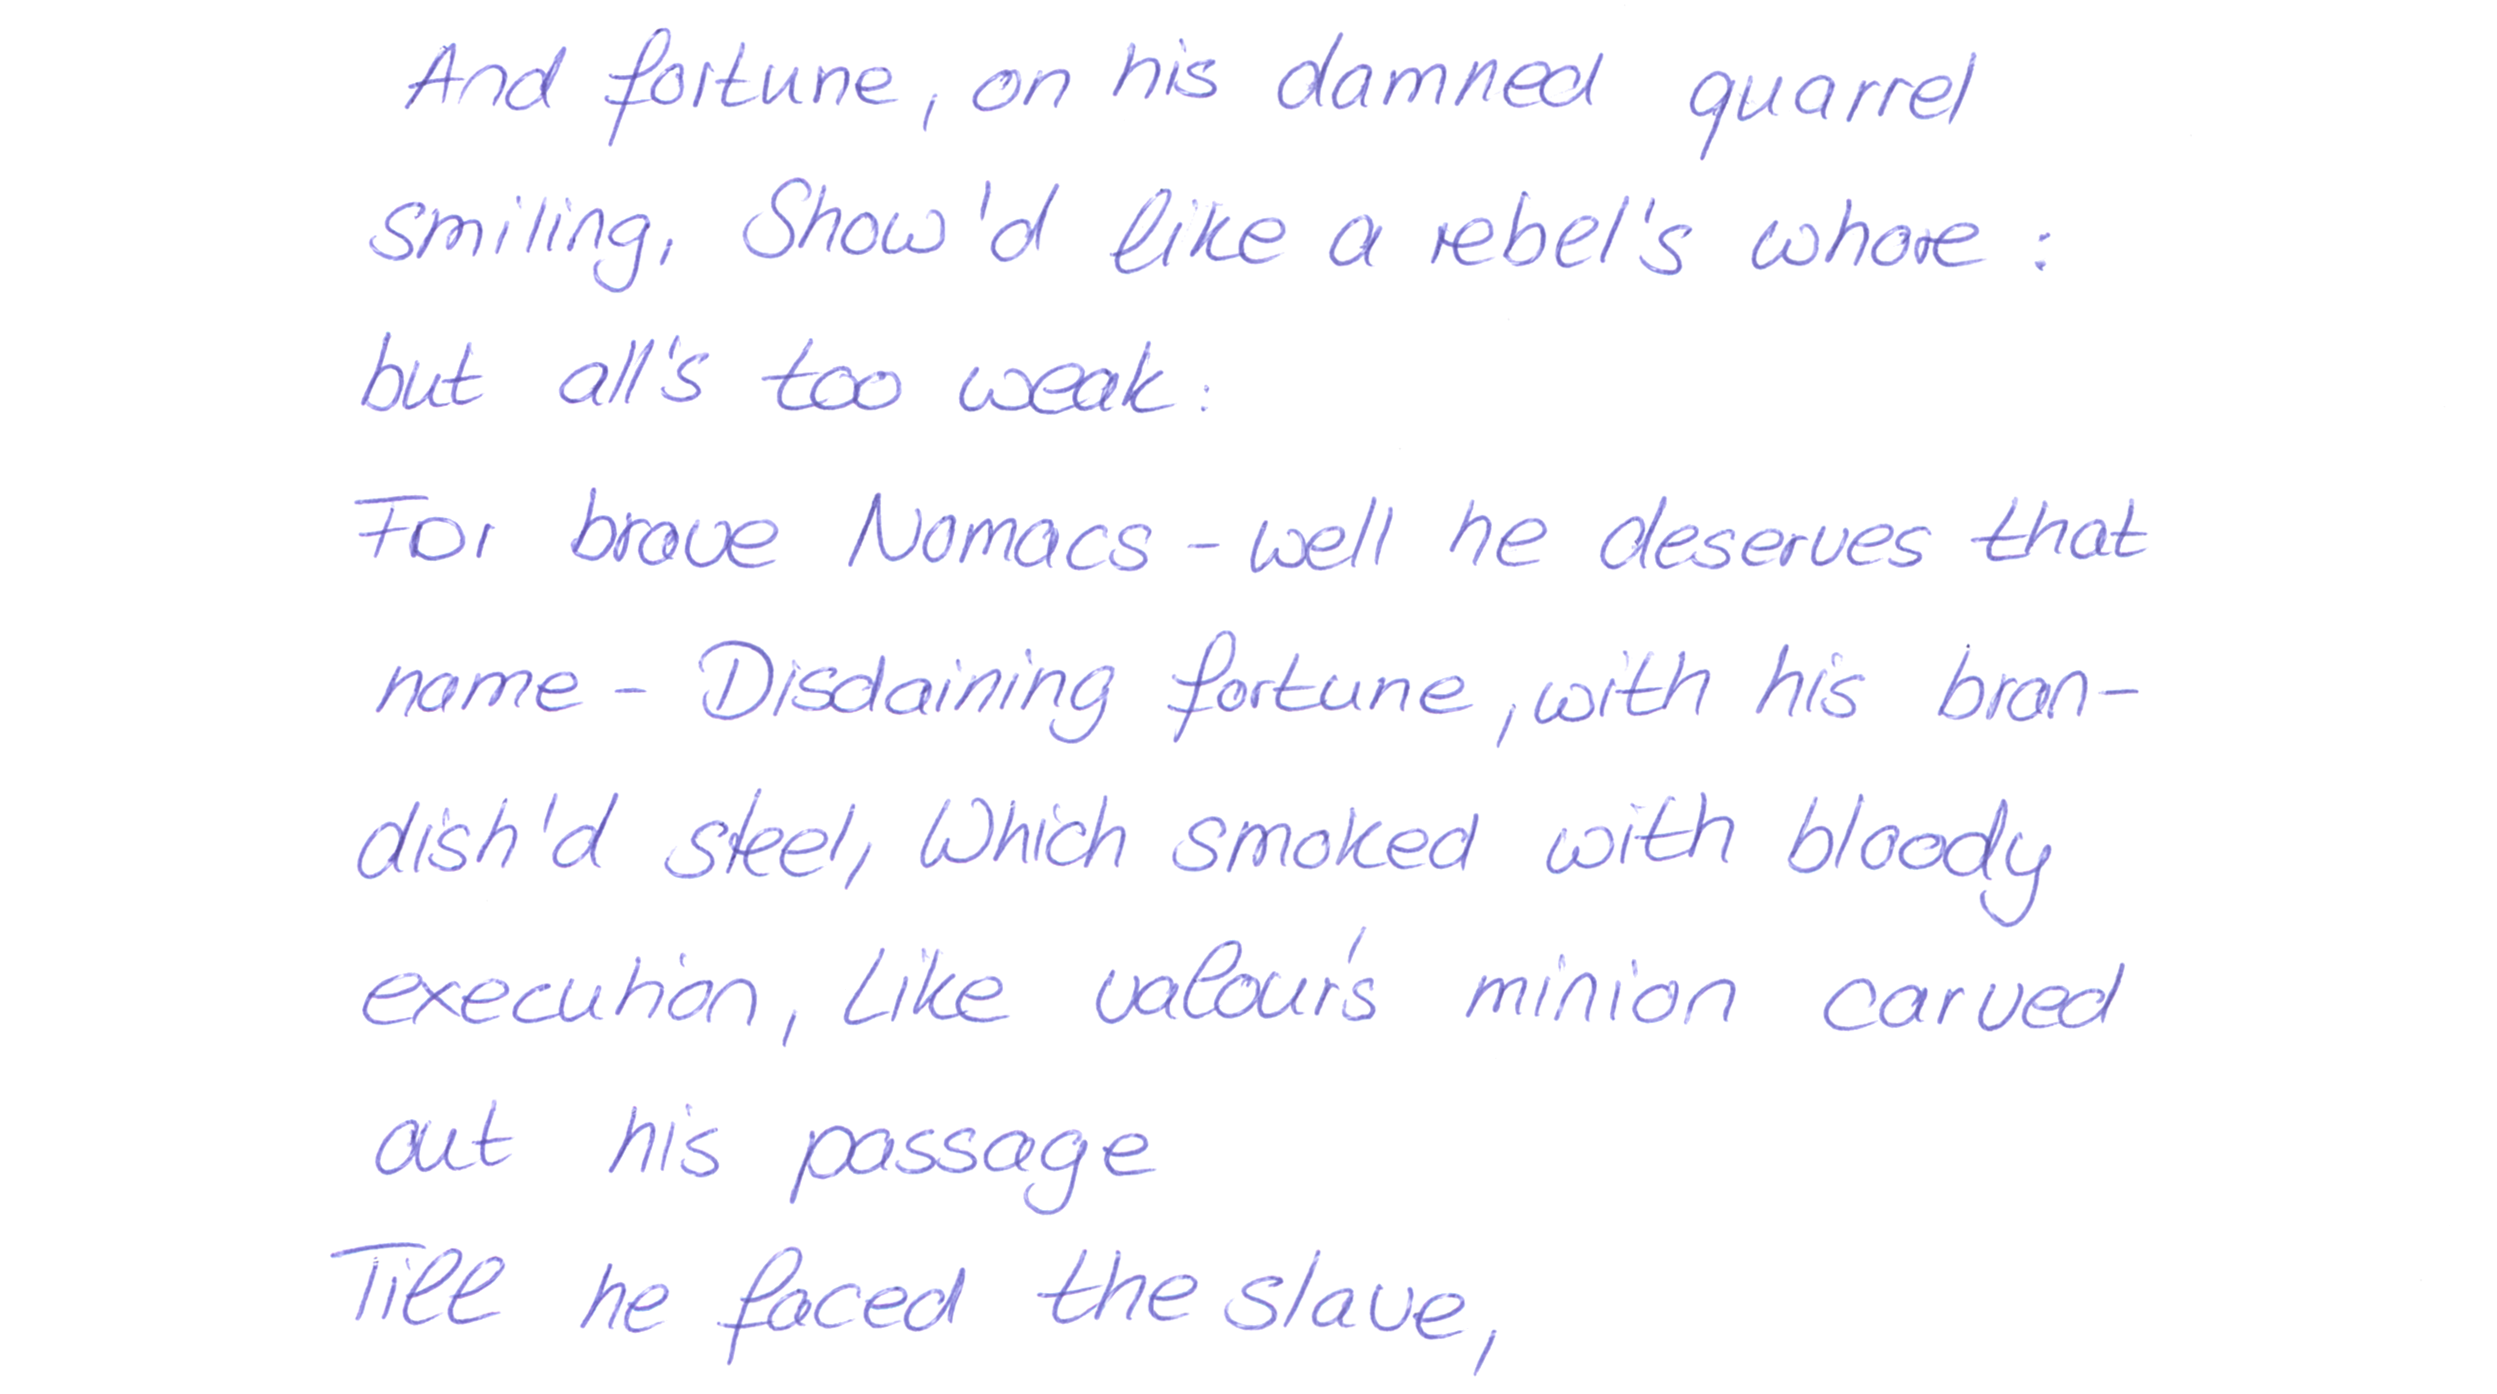 And fortune, on his damned quarrel
smiling, Show'd like a rebel's whore:
but all's too weak:
For brave Nomacs - well he deserves that
name - Disdaining fortune, with his bran-
dish'd steel, Which smoked with bloody
execution, Like valour's minion carved
out his passage
Till he faced the slave,